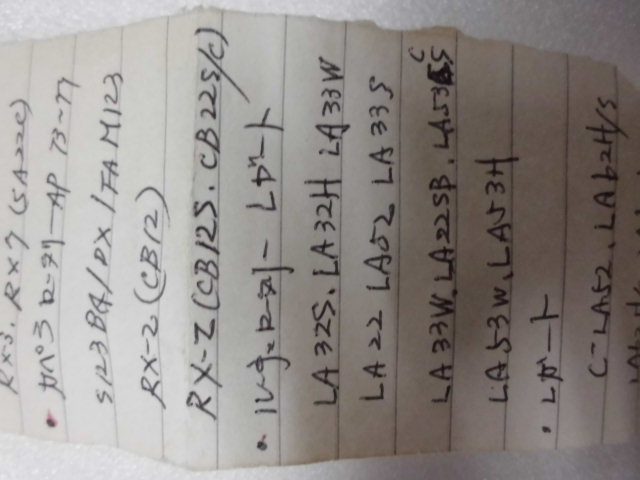 RX3. RX7 (SA22C)
・カペラロータリーAP 73~77
S123BA/DX/FAM123
RX-2(CB12)
RX-Z(CB12S.CB22S/C)
・ルーチェロータリー レガート
LA32S.LA32H LA33W
LA22 LA52 LA33S
LA33W.LA22SB.LA53CS
LA53W.LA53H
・レガート
C-LA52.LA62H/S